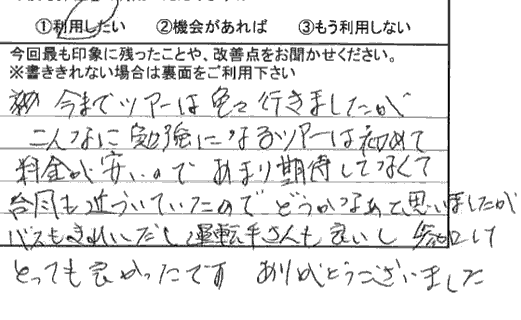 ①利用したい ②機会があれば ③もう利用しない
今回最も印象に残ったことや、改善点をお聞かせください。
※書ききれない場合は裏面をご利用下さい
今までツアーは色々行きましたが
こんなに勉強になるツアーは初めて
料金が安いので あまり期待してなくて
台風も近づいていたので どうかなあと思いましたが
バスもきれいだし 運転手さんも良いし 参加して
とっても良かったです ありがとうございました